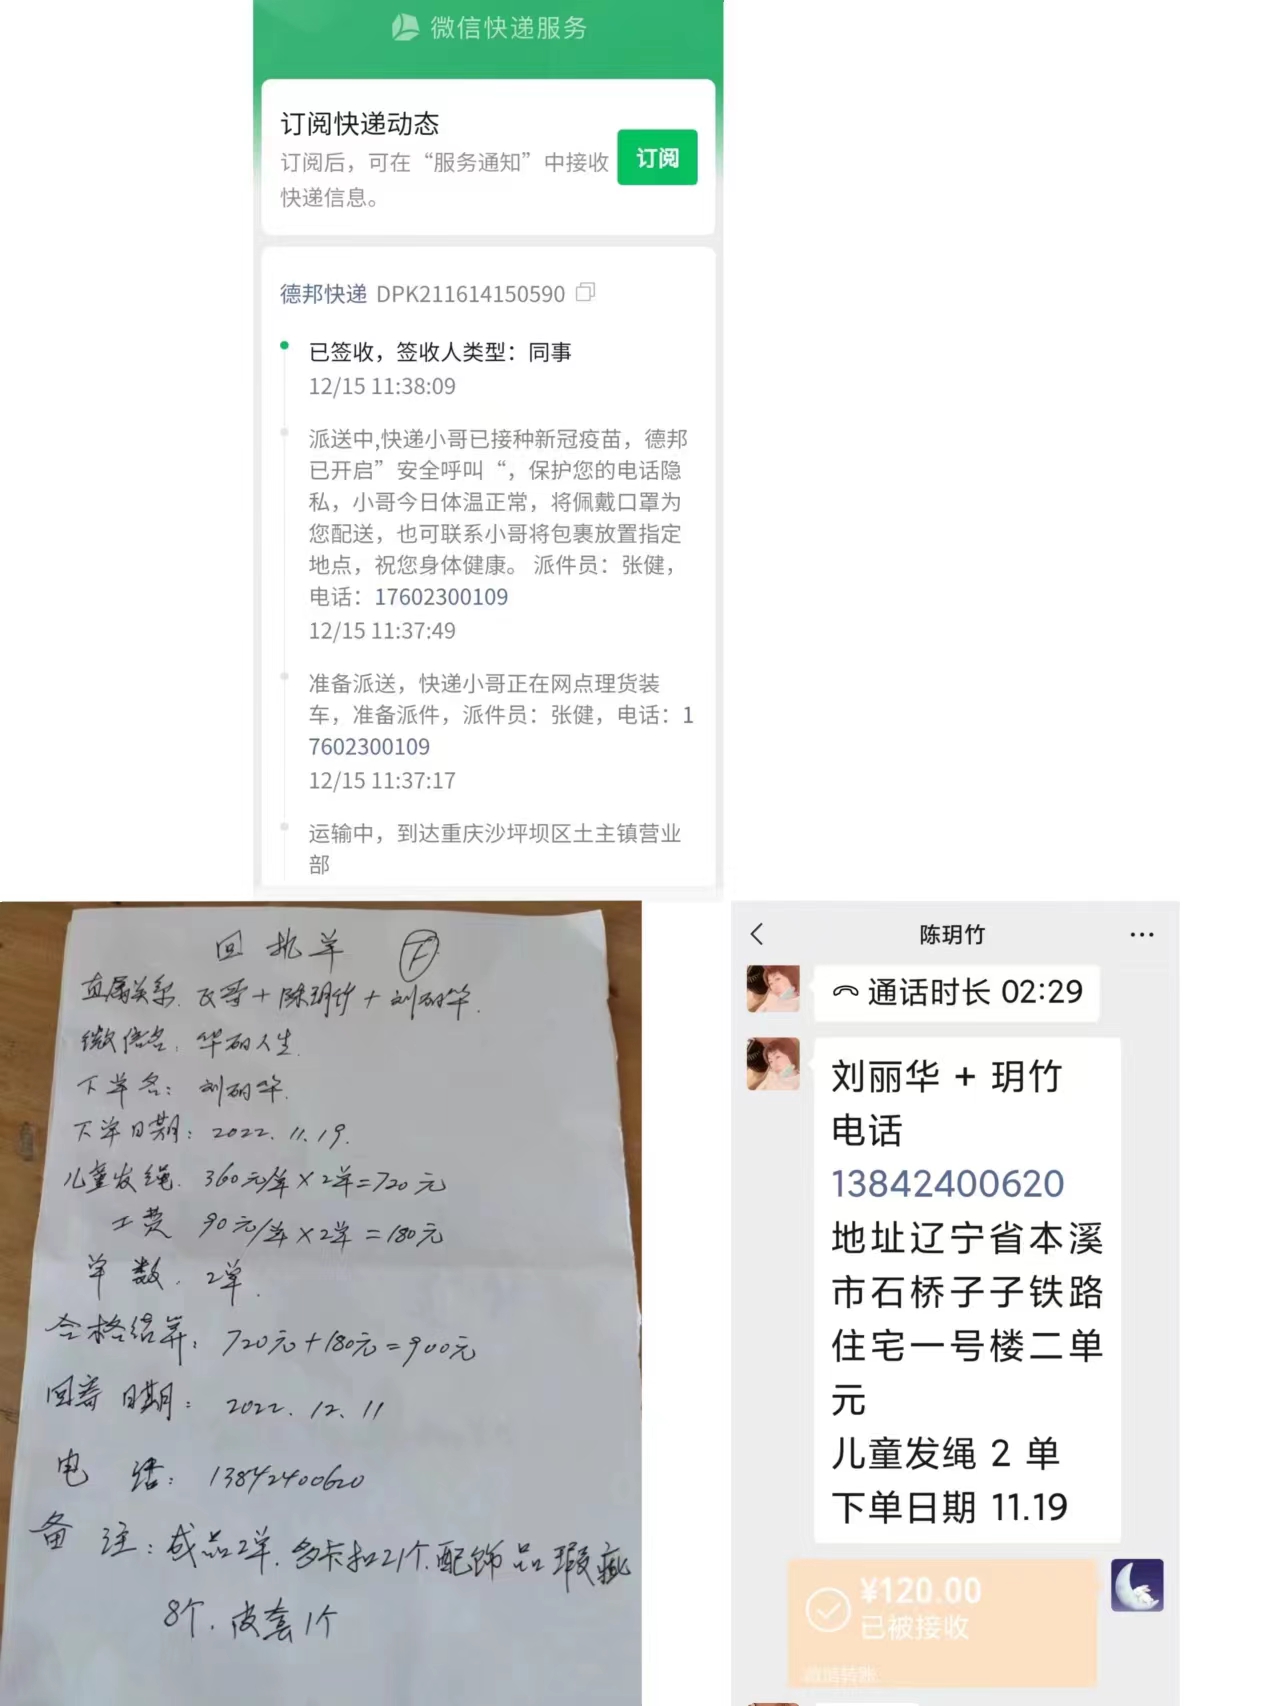 微信快递服务
订阅快递动态
订阅后，可在“服务通知”中接收
快递信息。
订阅
德邦快递 DPK211614150590
已签收，签收人类型：同事
12/15 11:38:09
派送中,快递小哥已接种新冠疫苗，德邦
已开启”安全呼叫“，保护您的电话隐
私，小哥今日体温正常，将佩戴口罩为
您配送，也可联系小哥将包裹放置指定
地点，祝您身体健康。 派件员：张健，
电话：17602300109
12/15 11:37:49
准备派送，快递小哥正在网点理货装
车，准备派件，派件员：张健，电话：1
7602300109
12/15 11:37:17
运输中，到达重庆沙坪坝区土主镇营业
部
回执单
直属关系. 飞哥+陈玥竹+刘丽华.
微信名: 华丽人生.
下单名: 刘丽华.
下单日期: 2022.11.19.
儿童发绳. 360元/单×2单=720元
工费 90元/单×2单=180元
单数. 2单.
合格结算: 720元+180元=900元
回寄日期: 2022.12.11
电话: 13842400620
备注: 成品2单.多卡扣21个.配饰品瑕疵
8个.皮套1个
陈玥竹
通话时长 02:29
刘丽华 + 玥竹
电话
13842400620
地址辽宁省本溪
市石桥子子铁路
住宅一号楼二单
元
儿童发绳 2 单
下单日期 11.19
¥120.00
已被接收
微信转账